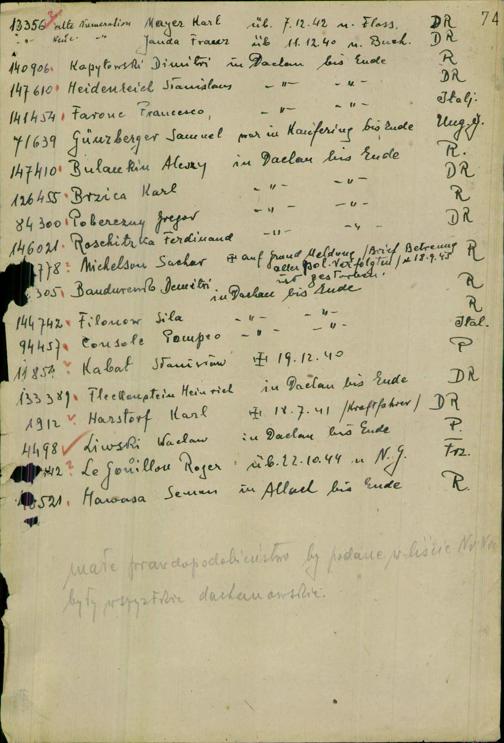 74
13356 alte Numeration Mayer Karl üb. 7.12.42 n. Floss. DR
-"- neue -"- Janda Franz üb 11.12.40 n. Buch. DR
140906. Kapytowski Dimitri in Dachau bis Ende R
147610. Heidenreich Stanislaus -"- -"- DR
141454. Farone Francesco, -"- -"- Italj.
71639 Günzberger Samuel war in Kaufering bis Ende Ung.j.
147410. Bulankin Alexzy in Dachau bis Ende R.
126455. Brzica Karl -"- -"- DR
84300. Poberezny Gregor -"- -"- R
146021. Roschitzka Ferdinand -"- -"- DR
778? Michelson Suchar ⌗ auf Grund Meldung /Brief Betreuung R
aller pol. Verfolgtul/ 18.9.45
ist gestorben.
305. Bandurenko Demitri in Dachau bis Ende R
144742. Filonow Sila -"- -"- R
94457. Console Pompeo -"- -"- Ital.
11854? Kabat Stanisław ⌗ 19.12.40 P
133389. Fleckenstein Heinrich in Dachau bis Ende DR
1912 Harstorf Karl ⌗ 18.7.41 /Kraftfahrer/ DR
4498 Liwski Wacław in Dachau bis Ende P.
42? Le Gouillon Roger üb. 22.10.44 n N.G. Frz.
521. Hawasa Seman in Allach bis Ende R.
małe prawdopodobieństwo by podane w liście Nr Nr
były wszystkie dachauowskie.